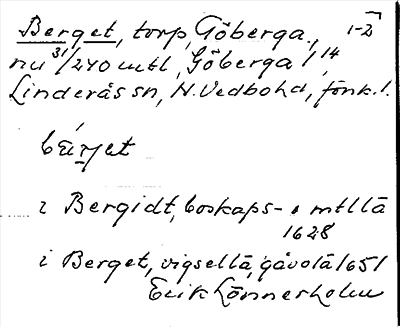 Berget, torp, Göberga., 1-2
nu 31/240 mtl, Göberga 1/14
Linderås sn, N. Vedbo hd, Jönk. l.
bärjet
i Bergidt, boskaps- o mtllä
1628
i Berget, vigsellä, gåvolä 1651
Erik Lönnerholm